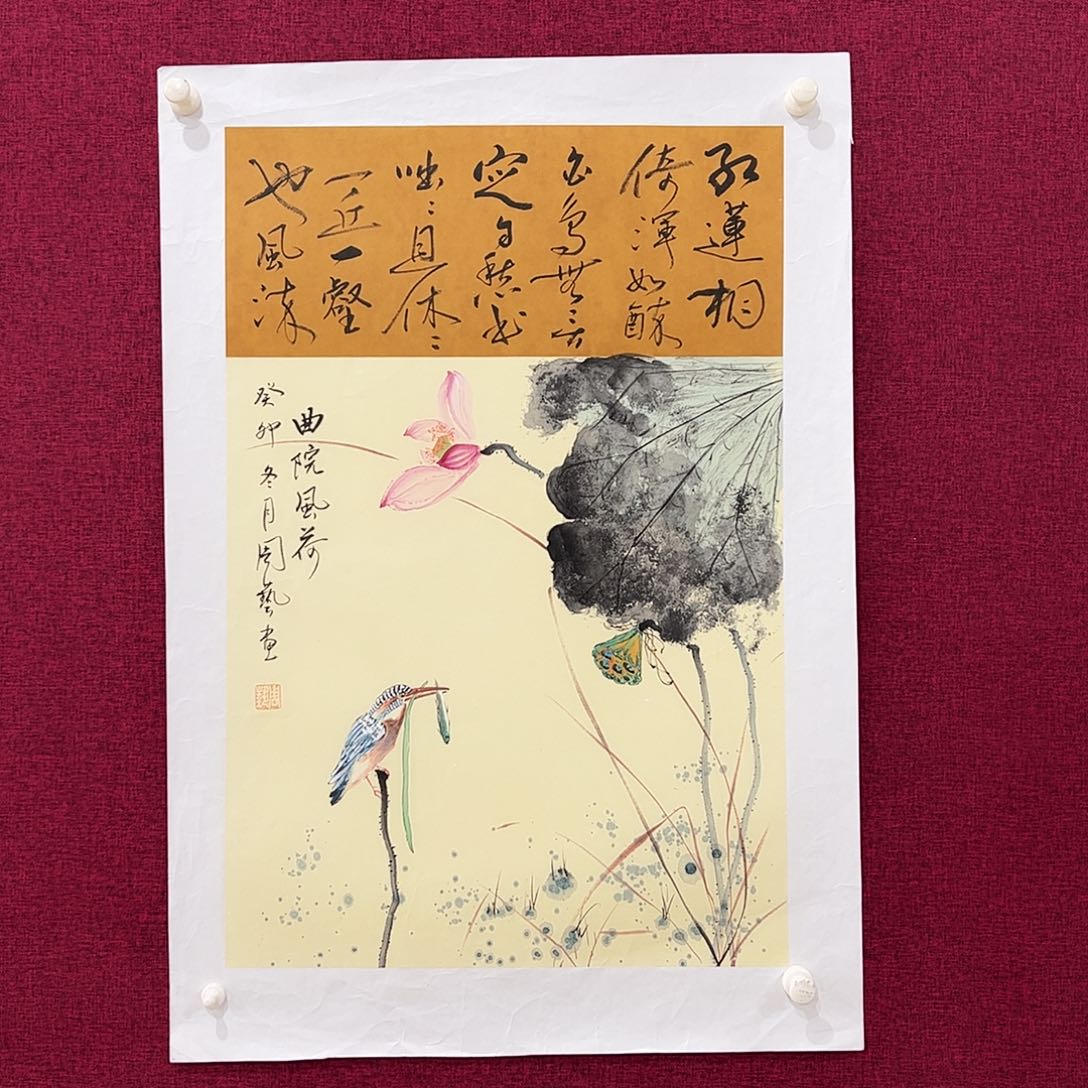 红蓮相
倚渾如醉
白鳥無言
定自愁书
咄〻且休〻
一丘一壑
也風流
曲院風荷
癸卯冬月周藝画